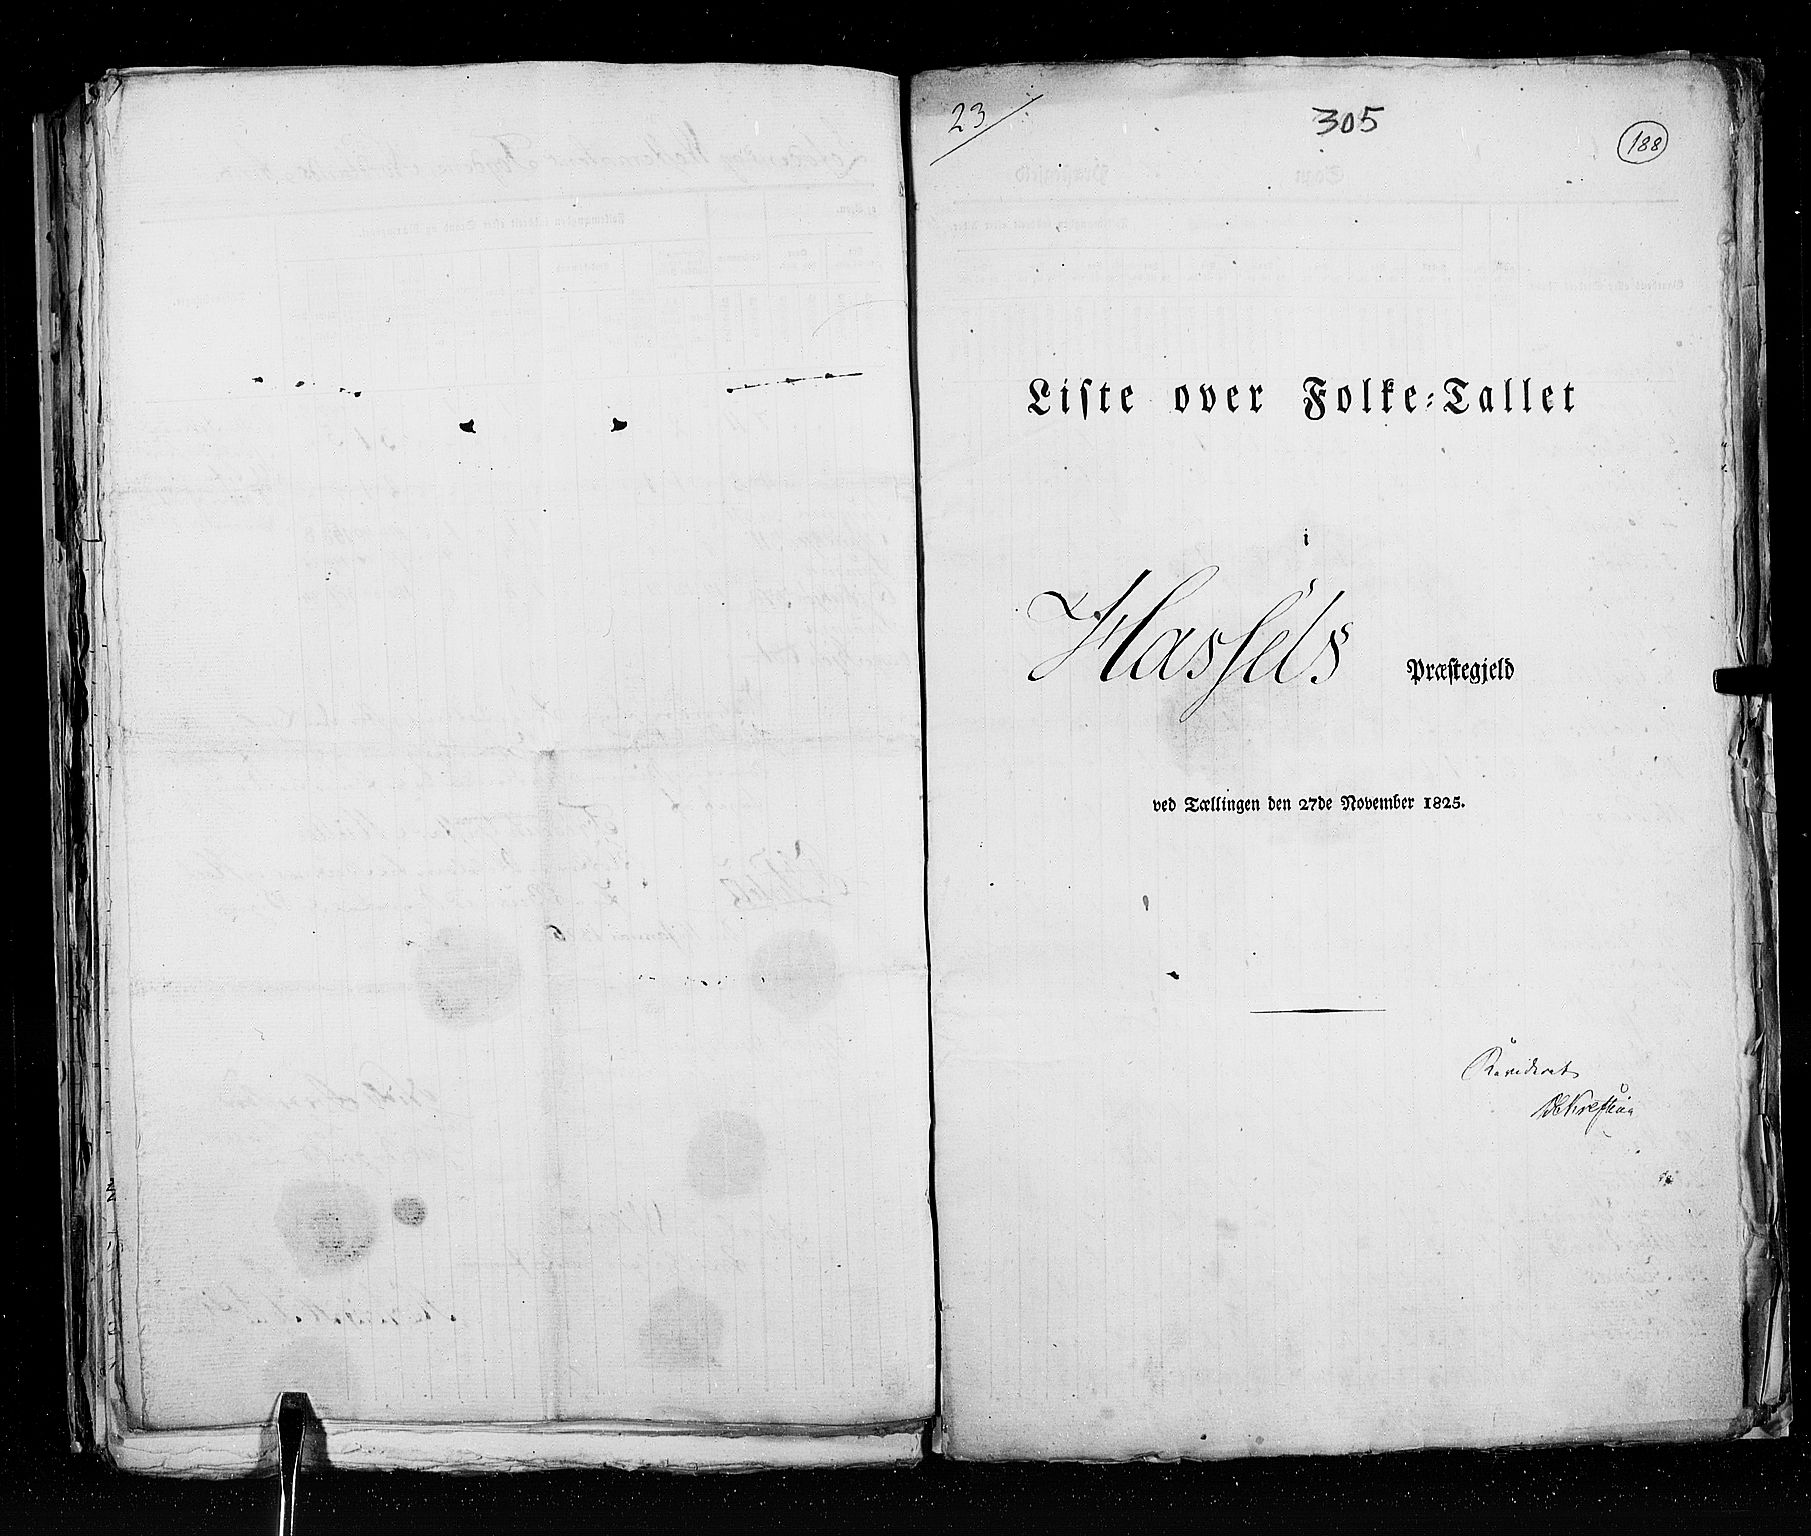 23
305
188
Liste over Folke-Tallet
i
Hassels Præstegjeld
ved Tællingen den 27de November 1825.
Revideret